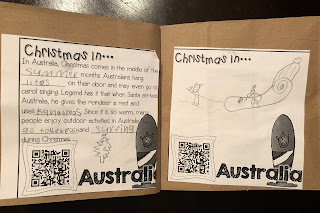 Christmas in...
In Australia, Christmas comes in the middle of the
summer months. Australians hang
lites on their door and may even go
carol singing. Legend has it that when Santa enters
Australia, he gives the reindeer a rest and
uses Kangaroos. Since it is so warm, many
people enjoy outdoor activities in Australia
and surfing
during Christmas.
Australia
Christmas in...
Australia